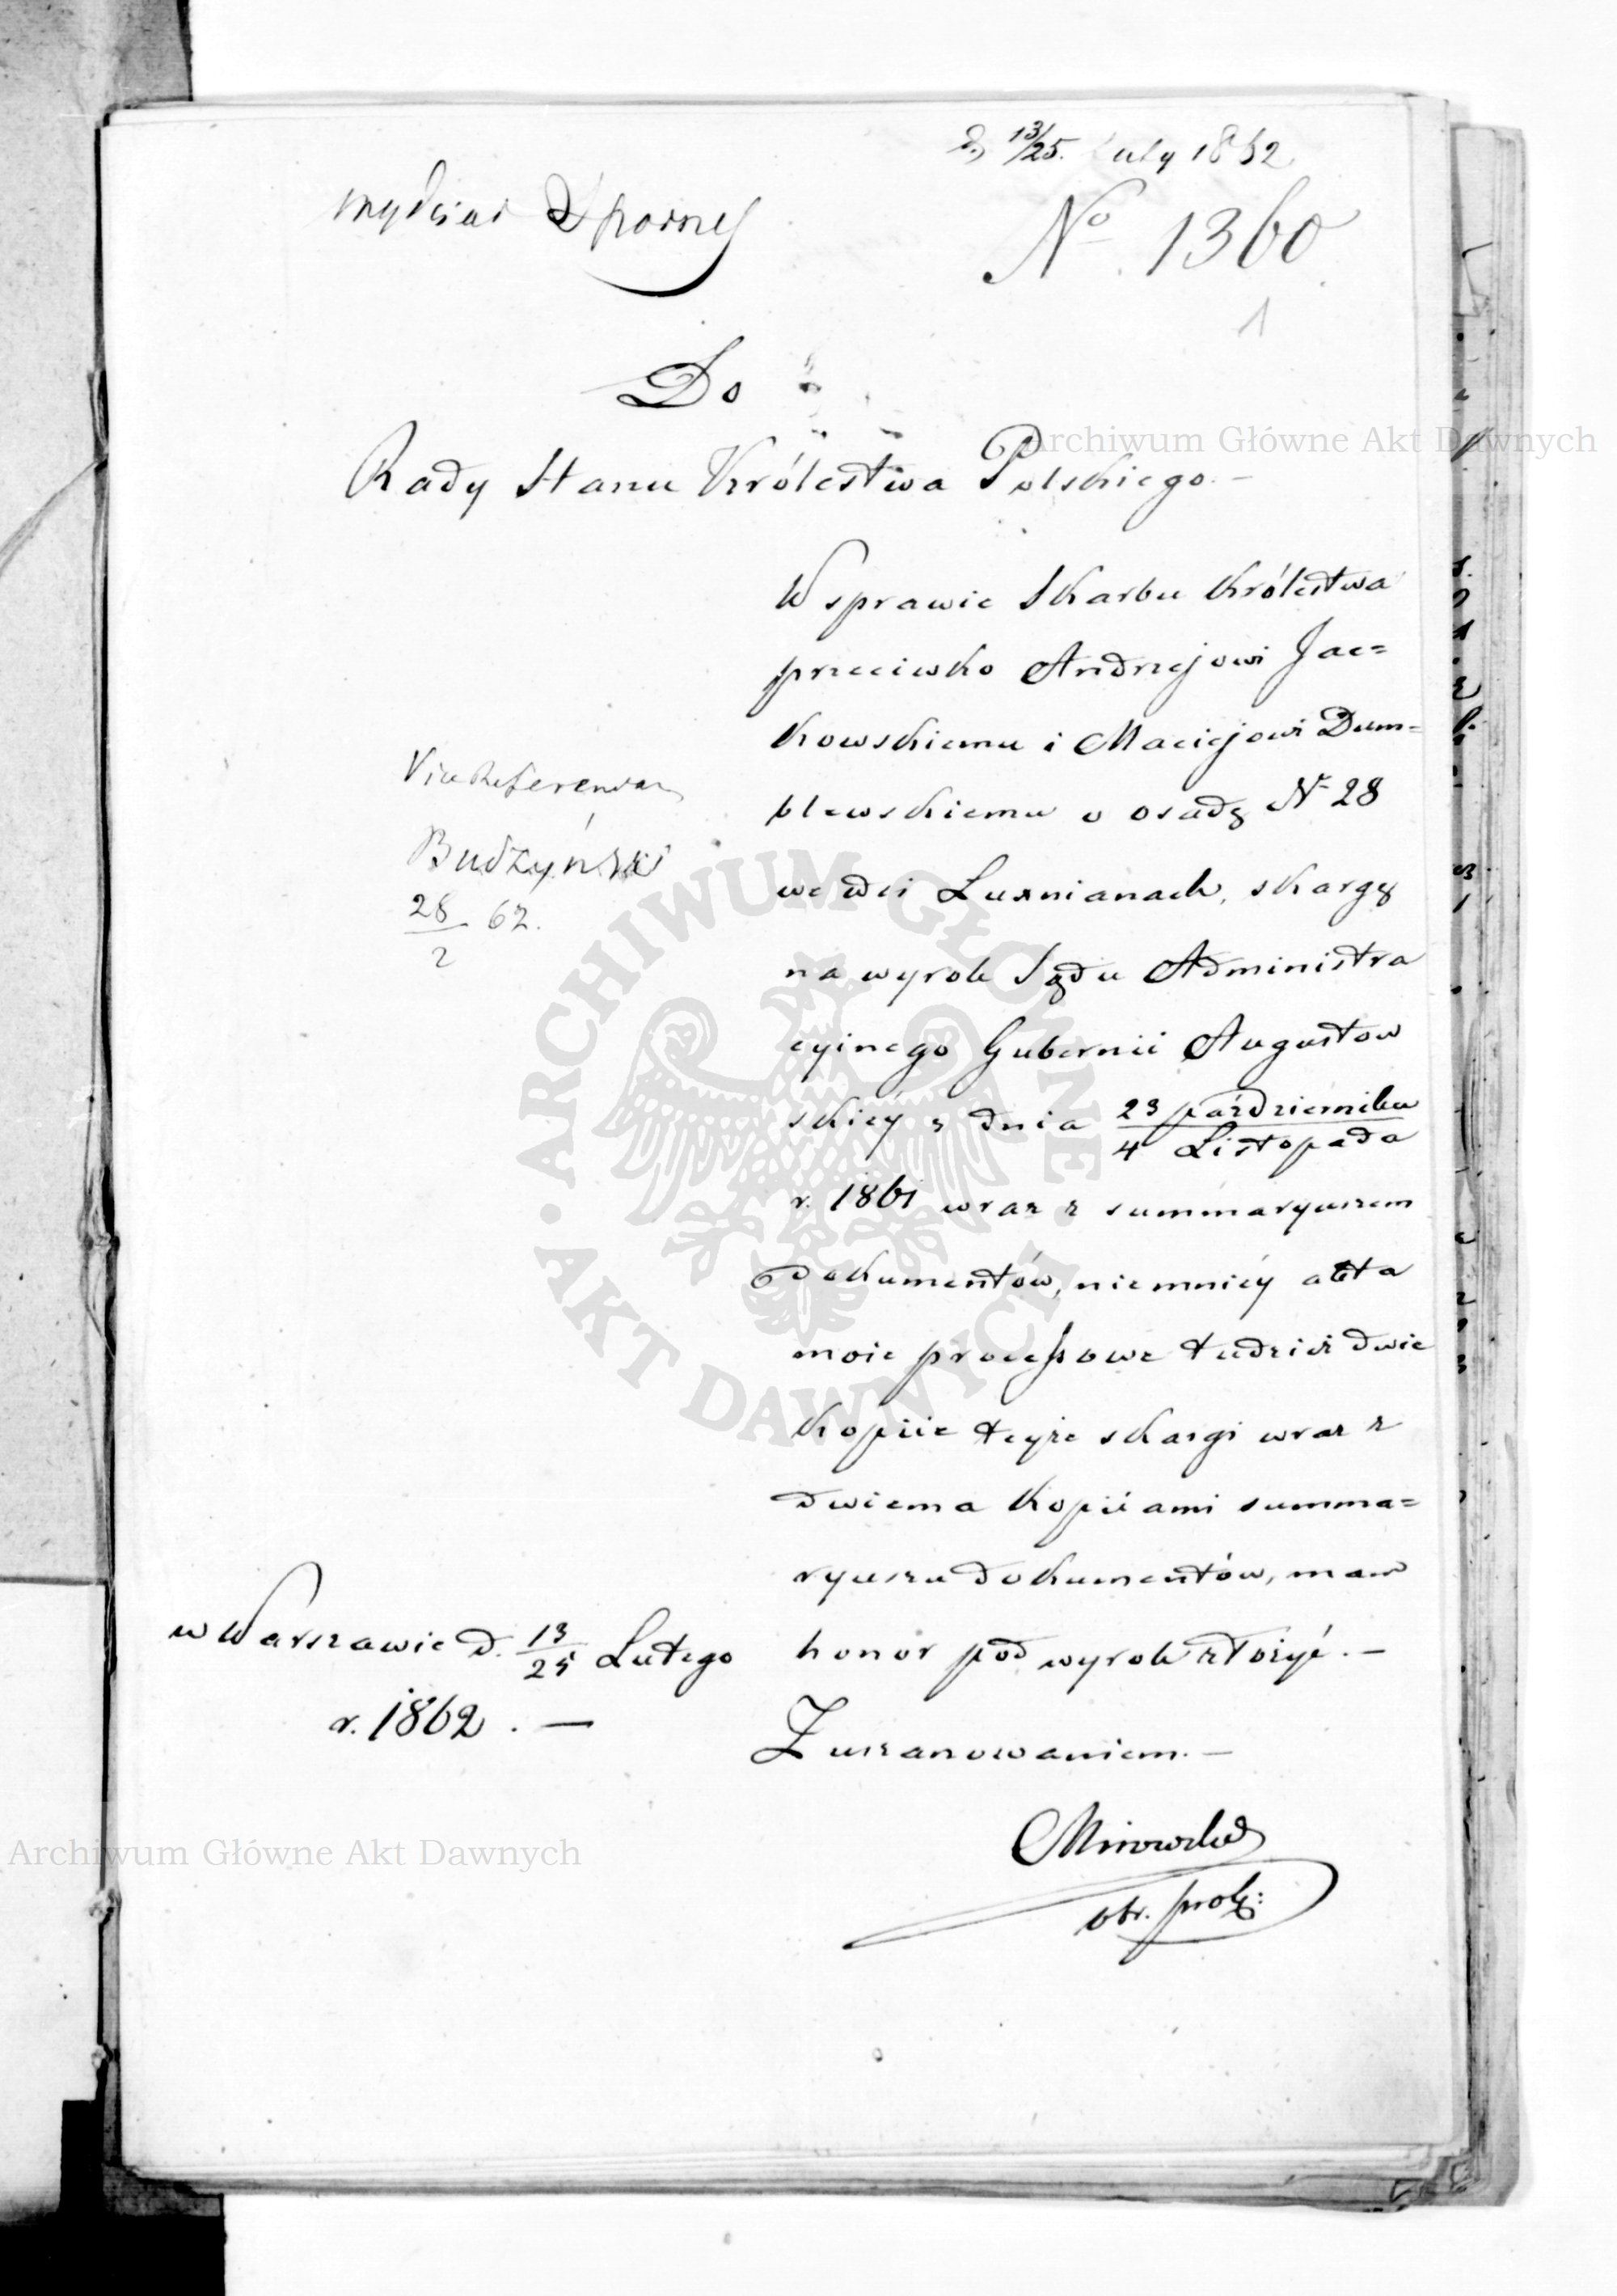 d. 13/25. Luty 1862
Wydział Sporny
No. 1360
1
Do
Rady Stanu Królestwa Polskiego. —
W sprawie Skarbu Królestwa
przeciwko Andrzejowi Jac=
kowskiemu i Maciejowi Dum=
blewskiemu o osadę N 28
we wsi Luxnianach, skargę
na wyrok Sądu Administra
cyinego Gubernii Augustow
skiéy z dnia 23 października / 4 Listopada
r. 1861 wraz z summaryuszem
dokumentów, niemniéy akta
moie processowe tudzież dwie
kopiie teyże skargi wraz z
dwiema kopiiami summa=
ryuszu dokumentów, mam
honor pod wyrok złożyć. —
Z uszanowaniem. —
ViceReferendarz
Budzyński
28/2 62.
w Warszawie d. 13/25 Lutego
r. 1862. —
Minowski
obr. prok:
Archiwum Główne Akt Dawnych
ARCHIWUM GŁÓWNE · AKT DAWNYCH ·
Archiwum Główne Akt Dawnych